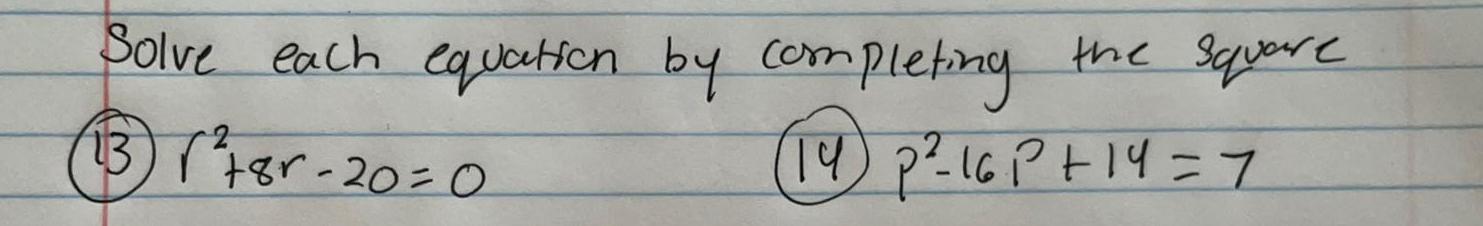 Solve each equation by completing the square
(13) r²+8r-20=0 (14) p²-16p+14=7